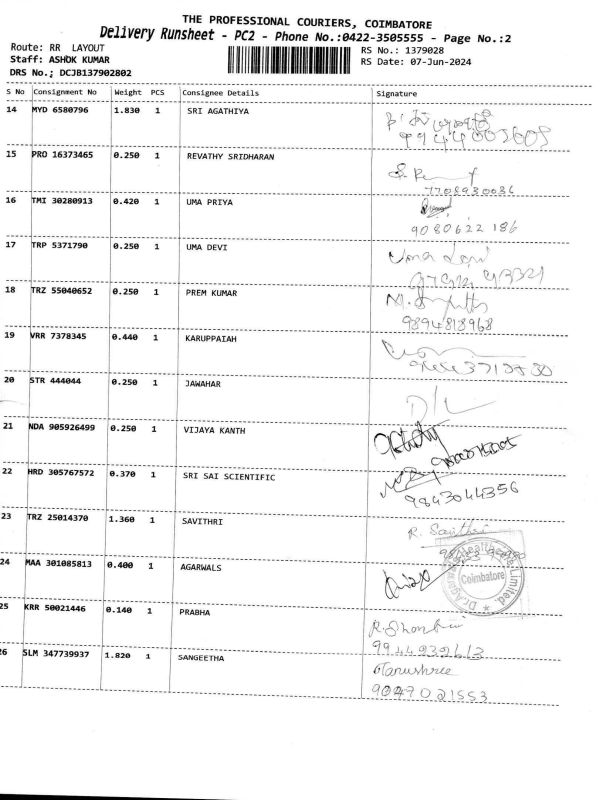 THE PROFESSIONAL COURIERS, COIMBATORE
Delivery Runsheet - PC2 - Phone No.:0422-3505555 - Page No.:2
Route: RR LAYOUT RS No.: 1379028
Staff: ASHOK KUMAR RS Date: 07-Jun-2024
DRS No.; DCJB137902802
S No Consignment No Weight PCS Consignee Details Signature
14 MYD 6580796 1.830 1 SRI AGATHIYA
15 PRO 16373465 0.250 1 REVATHY SRIDHARAN
7708930036
16 TMI 30280913 0.420 1 UMA PRIYA
9080622 186
17 TRP 5371790 0.250 1 UMA DEVI
Uma Devi
18 TRZ 55040652 0.250 1 PREM KUMAR
9894818968
19 VRR 7378345 0.440 1 KARUPPAIAH
20 STR 444044 0.250 1 JAWAHAR
D/L
21 NDA 905926499 0.250 1 VIJAYA KANTH
22 HRD 305767572 0.370 1 SRI SAI SCIENTIFIC
9843044356
23 TRZ 25014370 1.360 1 SAVITHRI
R. Savithri
24 MAA 301085813 0.400 1 AGARWALS
Coimbatore
Limited
25 KRR 50021446 0.140 1 PRABHA
9944932613
26 SLM 347739937 1.820 1 SANGEETHA
Tanushree
9047021553